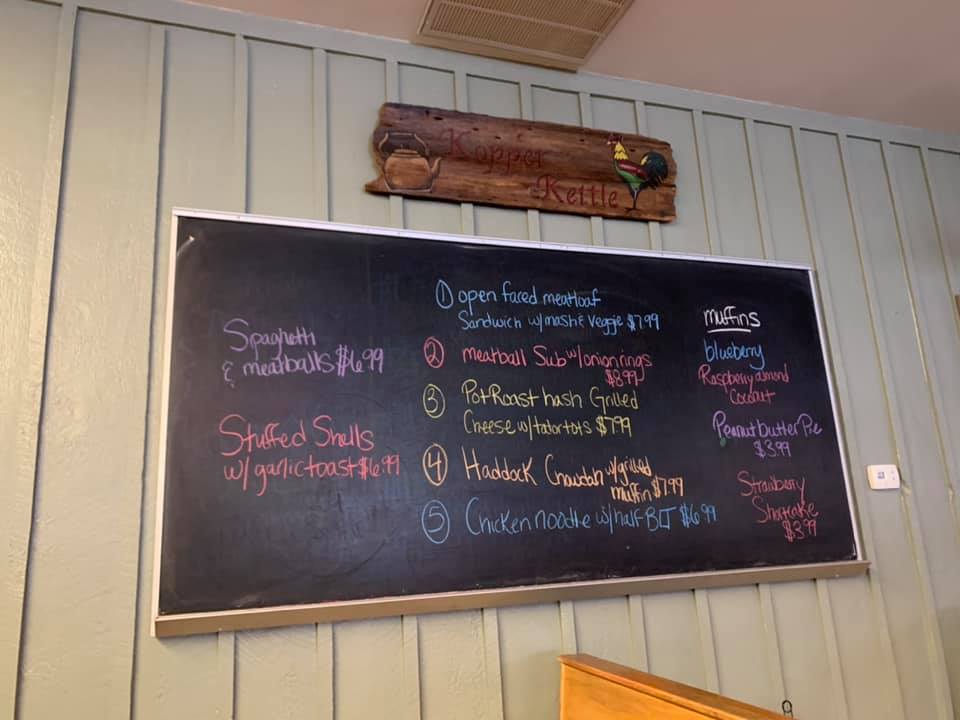 Kopper
Kettle
Spaghetti
& meatballs $6.99
Stuffed Shells
w/ garlic toast $6.99
① open faced meatloaf
Sandwich w/ mash & Veggie $7.99
② meatball Sub w/ onion rings
$8.99
③ Pot Roast hash Grilled
Cheese w/ tator tots $7.99
④ Haddock Chowdah w/ grilled
muffin $7.99
⑤ Chicken noodle w/ half BLT $6.99
muffins
blueberry
Raspberry almond
Coconut
Peanut butter Pie
$3.99
Strawberry
Shortcake
$3.99